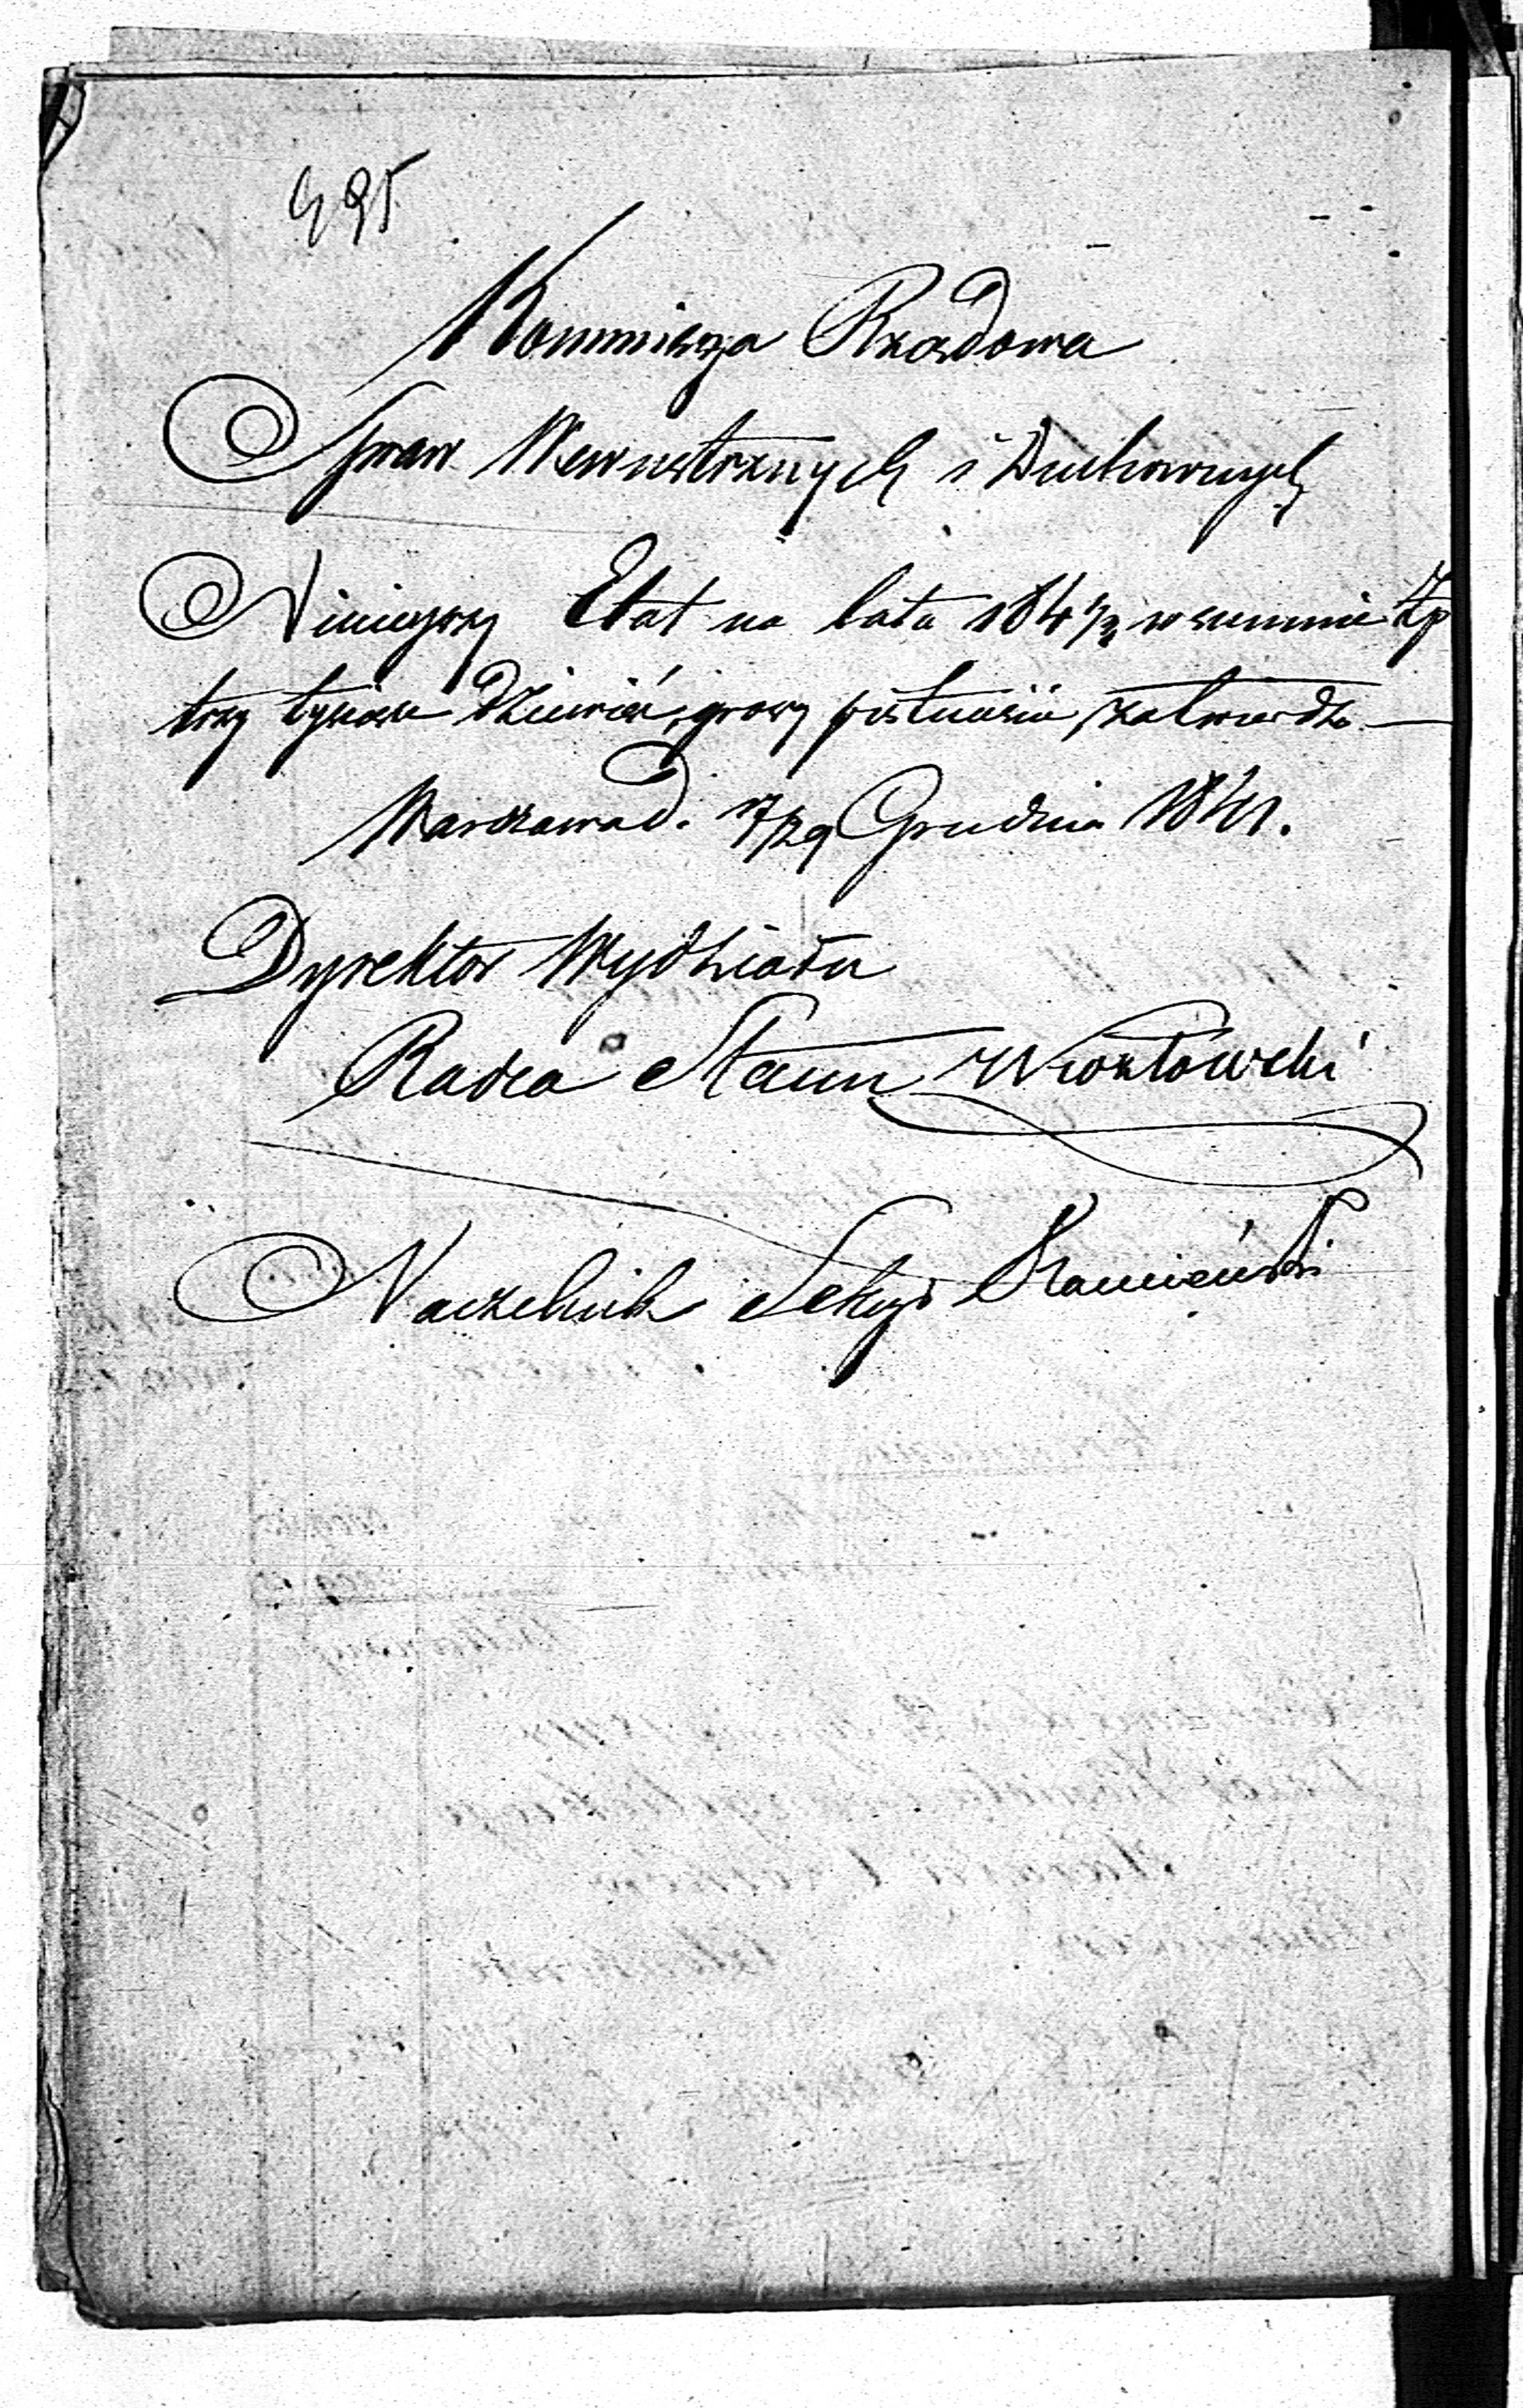 495
Kommissya Rządowa
Spraw Wewnętrznych i Duchownych
Ninieyszy Etat na lata 184 1/3 w summie Złp
trzy tysiące dziewięć, groszy piętnaście, zatwierdza —
Warszawa d. 17/29 Grudnia 1841.
Dyrektor Wydziału
Radca Stanu
Naczelnik Sekcyi Kamieński